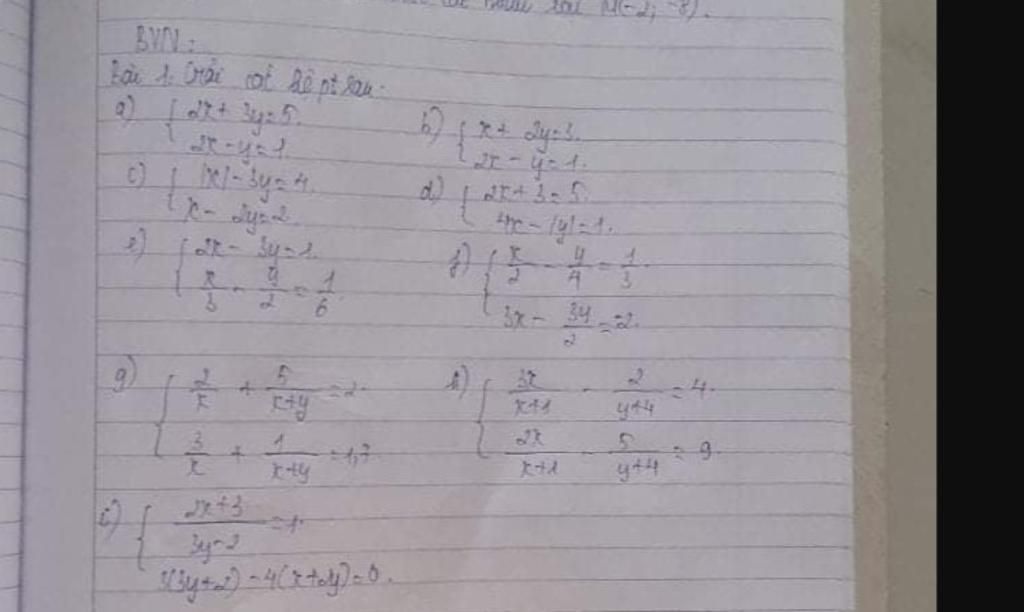 M(-2; -8).
BVN:
Bài 1. Giải các hệ pt sau:
a) { 2x + 3y = 5.
2x - y = 1.
b) { x + 2y = 3.
2x - y = 1.
c) { |x| - 3y = 4.
x - 2y = 2.
d) { 2x + 3 = 5.
4x - |y| = 1.
e) { 2x - 3y = 1.
x/3 - y/2 = 1/6.
f) { x/2 - y/4 = 1/3.
3x - 3y/2 = 2.
g) { 2/x + 5/(x+y) = 2.
3/x + 1/(x+y) = 1,7.
h) { 3x/(x+1) - 2/(y+4) = 4.
2x/(x+1) - 5/(y+4) = 9.
i) { (2x+3)/(3y-2) = 1.
3(3y+2) - 4(x+2y) = 0.